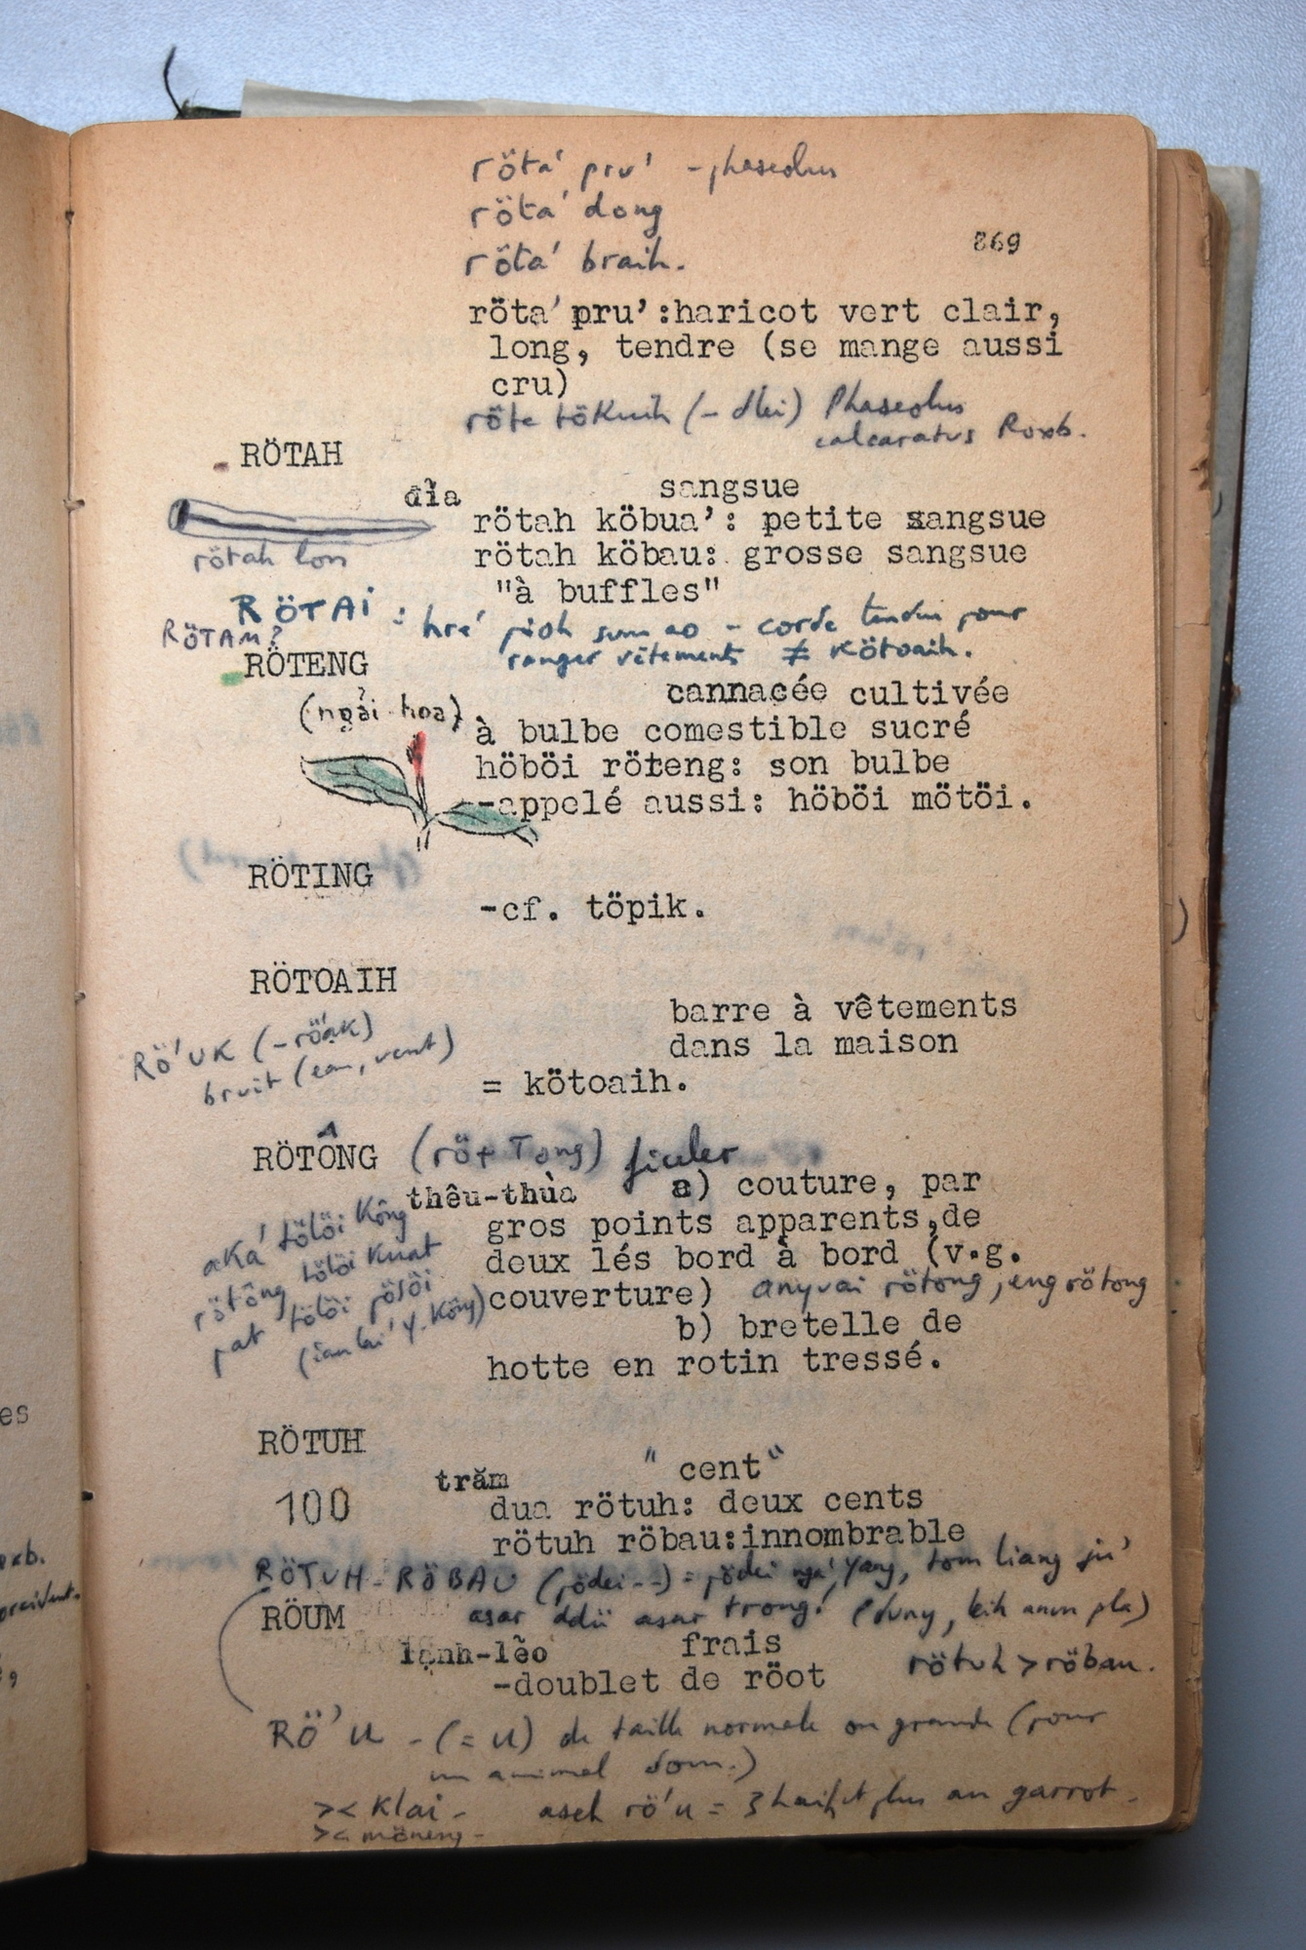 röta' pru' - phaseolus
röta' dong
röta' braih.
869
röta' pru':haricot vert clair,
long, tendre (se mange aussi
cru)
röte tökuih (- dlei) Phaseolus
calcaratus Roxb.
RÖTAH
đỉa sangsue
rötah köbua': petite sangsue
rötah lon
rötah köbau: grosse sangsue
"à buffles"
RÖTAI : hré pioh sum ao - corde tendue pour
ranger vêtements ≠ kötoaih.
RÖTAM?
RÖTENG
cannacée cultivée
(ngải hoa)
à bulbe comestible sucré
höböi röteng: son bulbe
-appelé aussi: höböi mötöi.
RÖTING
-cf. töpik.
RÖTOAIH
barre à vêtements
dans la maison
RÖ'UK (- röak)
bruit (eau, vent)
= kötoaih.
RÖTÔNG (rö + Tong) ficeler
thêu-thùa a) couture, par
gros points apparents,de
deux lés bord à bord (v.g.
couverture) anyvai rötong, eng rötong
aka' tölöi kông
rötông tölöi kuat
pat tölöi pösöi
b) bretelle de
hotte en rotin tressé.
RÖTUH
trăm " cent "
100
dua rötuh: deux cents
rötuh röbau:innombrable
RÖTUH - RÖBAU (pödei - -) = pödei nga' yang, tom liang ju'
asar ddü asar trong!
RÖUM
lạnh-lẽo frais
rötuh > röbau.
-doublet de röot
RÖ'U - (= u) de taille normale ou grande (pour
un animal dom.)
>< klai -
aseh rö'u = 3 haihet plus au garrot.
>< möneng -
es
oxb.